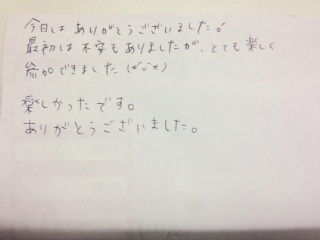 今日は ありがとうございました。
最初は 不安も ありましたが、とても 楽しく
参加できました (*^^*)
楽しかったです。
ありがとうございました。